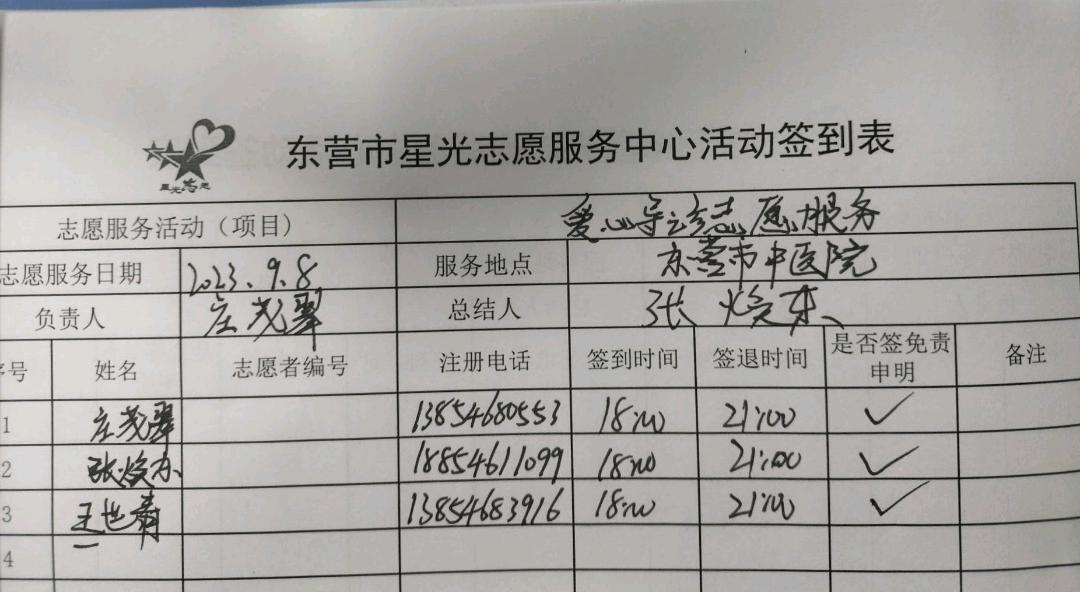 星光志愿
东营市星光志愿服务中心活动签到表
志愿服务活动（项目） 爱心导诊志愿服务
志愿服务日期 2023.9.8 服务地点 东营市中医院
负责人 庄茂翠 总结人 张焕东
序号 姓名 志愿者编号 注册电话 签到时间 签退时间 是否签免责申明 备注
1 庄茂翠 13854680553 18:00 21:00 ✓
2 张焕东 18854611099 18:00 21:00 ✓
3 王世青 13854683916 18:00 21:00 ✓
4